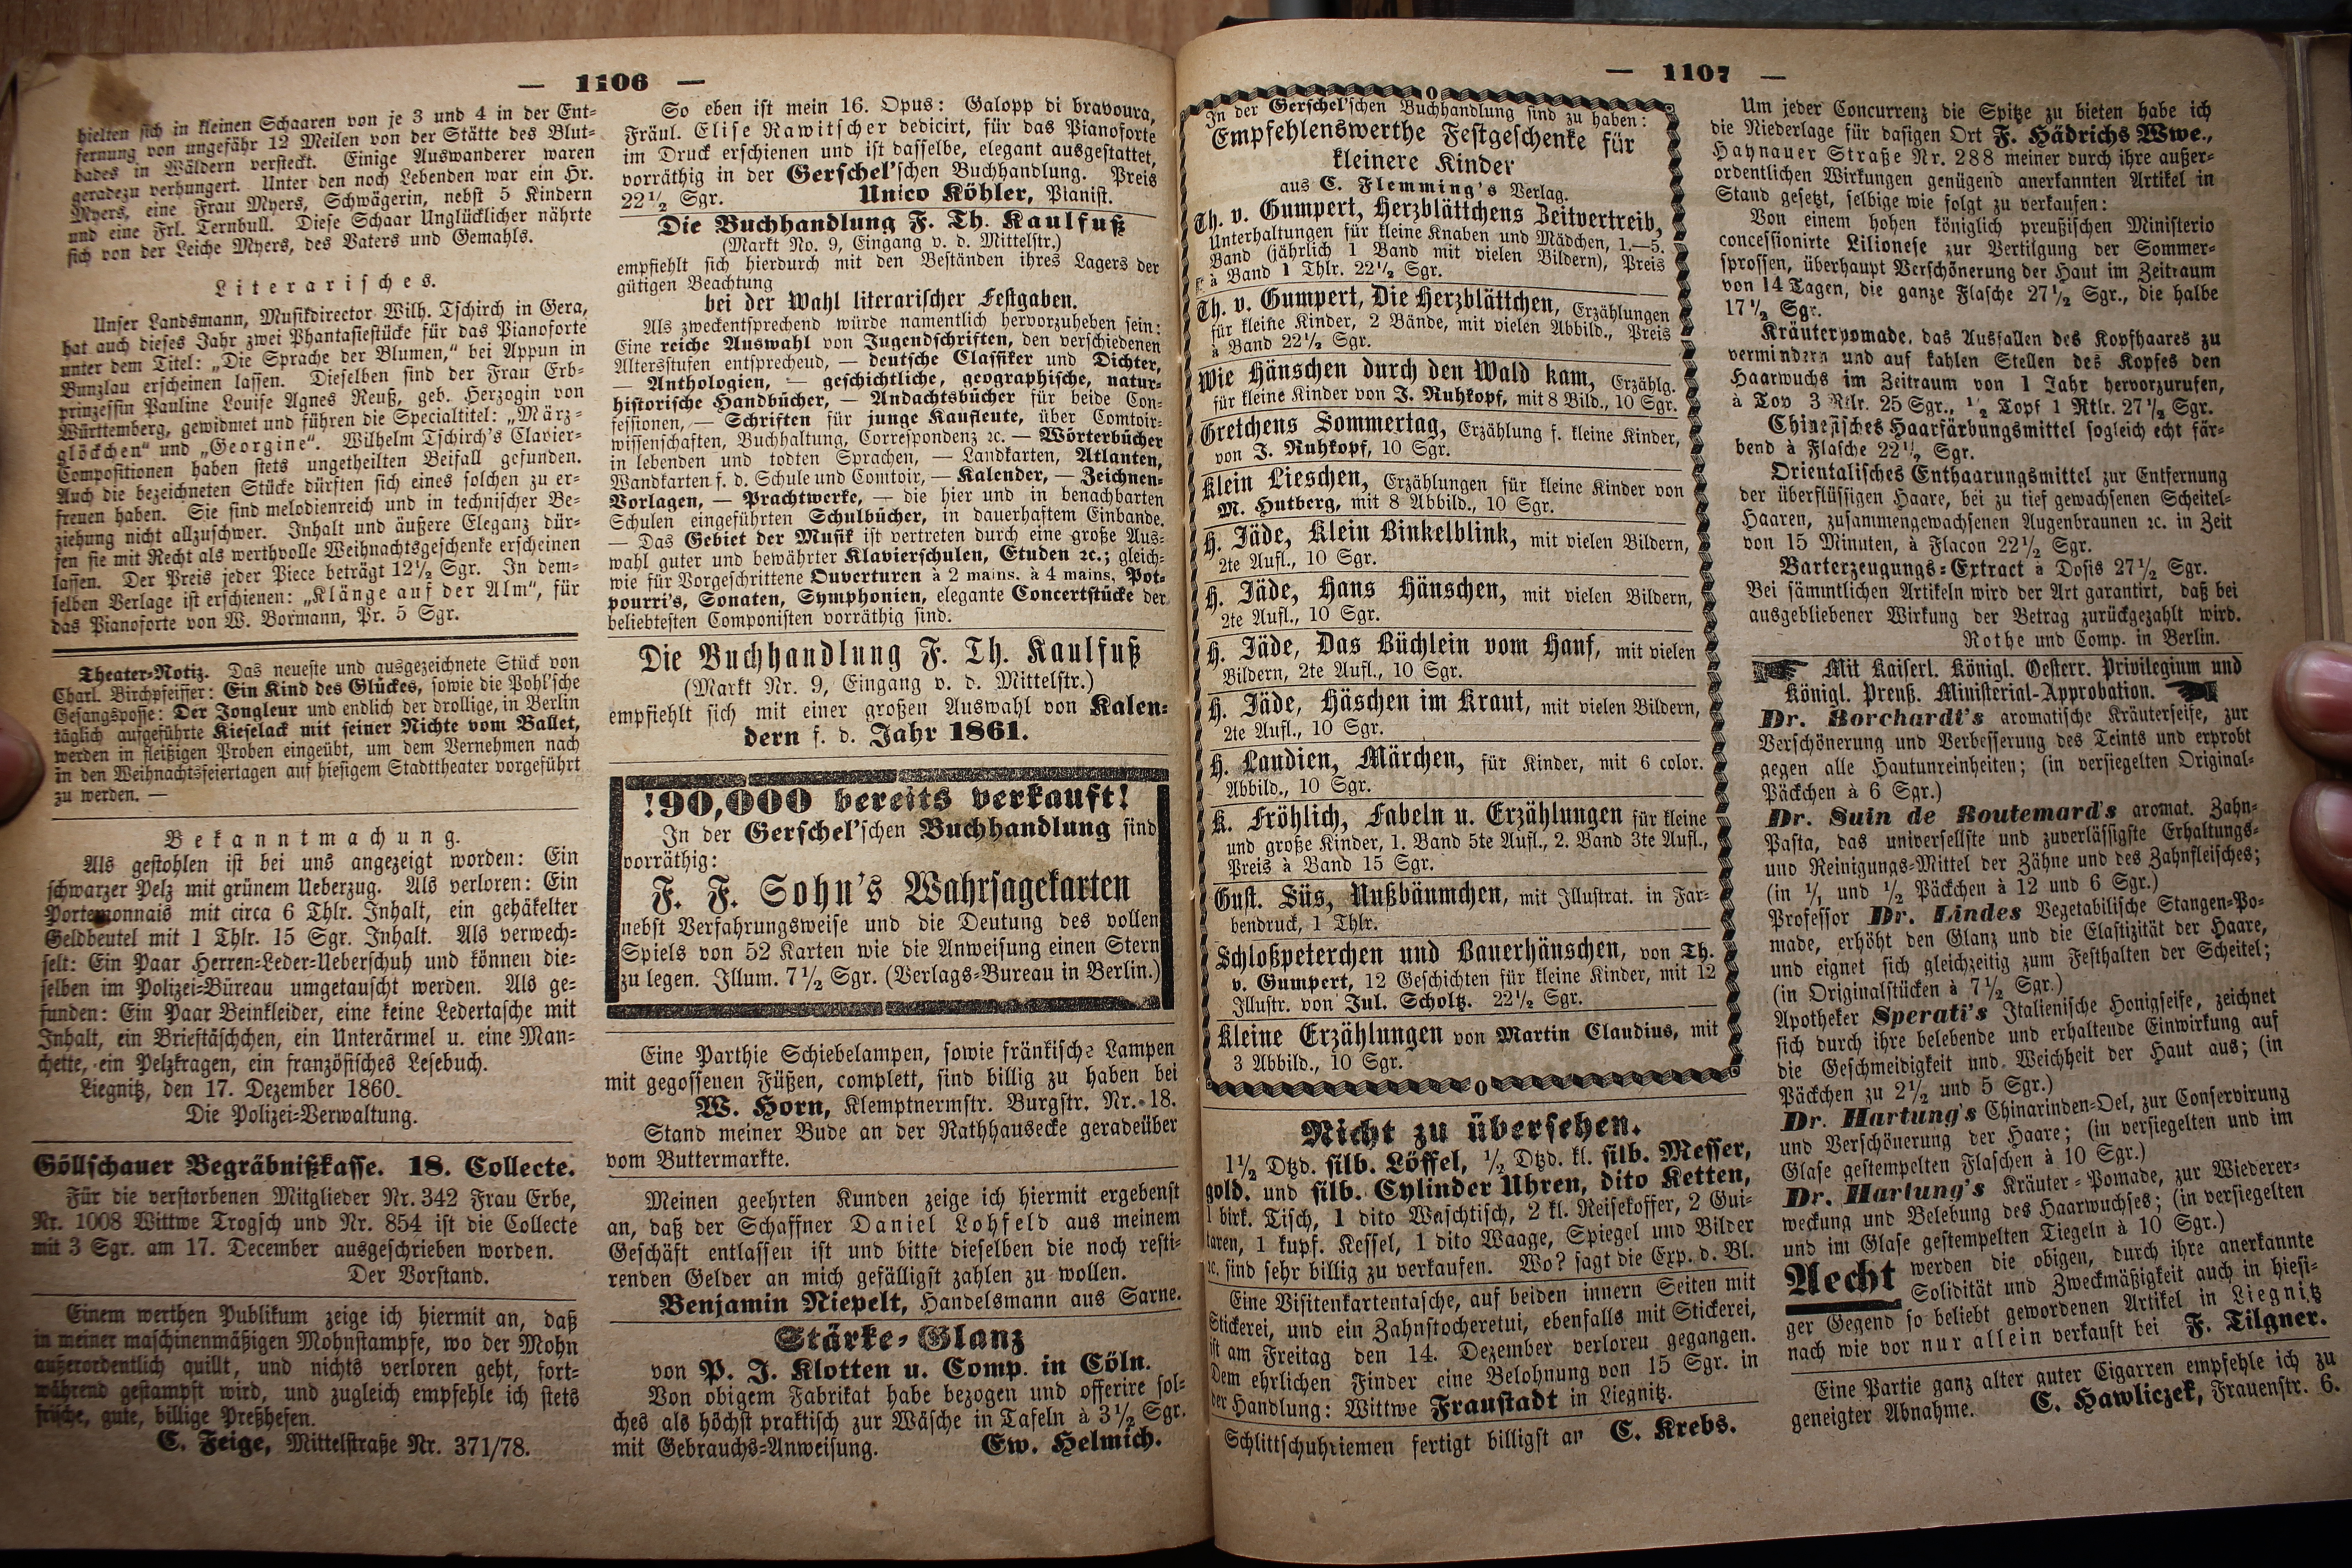 — 1106 —
hielten sich in kleinen Schaaren von je 3 und 4 in der Ent-
fernung von ungefähr 12 Meilen von der Stätte des Blut-
bades in Wäldern versteckt. Einige Auswanderer waren
geradezu verhungert. Unter den noch Lebenden war ein Hr.
Myers, eine Frau Myers, Schwägerin, nebst 5 Kindern
und eine Frl. Ternbull. Diese Schaar Unglücklicher nährte
sich von der Leiche Myers, des Vaters und Gemahls.
Literarisches.
Unser Landsmann, Musikdirector Wilh. Tschirch in Gera,
hat auch dieses Jahr zwei Phantasiestücke für das Pianoforte
unter dem Titel: „Die Sprache der Blumen,“ bei Appun in
Bunzlau erscheinen lassen. Dieselben sind der Frau Erb-
prinzessin Pauline Louise Agnes Reuß, geb. Herzogin von
Württemberg, gewidmet und führen die Specialtitel: „März-
glöckchen“ und „Georgine“. Wilhelm Tschirch's Clavier-
Compositionen haben stets ungetheilten Beifall gefunden.
Auch die bezeichneten Stücke dürften sich eines solchen zu er-
freuen haben. Sie sind melodienreich und in technischer Be-
ziehung nicht allzuschwer. Inhalt und äußere Eleganz dür-
fen sie mit Recht als werthvolle Weihnachtsgeschenke erscheinen
lassen. Der Preis jeder Piece beträgt 12½ Sgr. In dem-
selben Verlage ist erschienen: „Klänge auf der Alm“, für
das Pianoforte von W. Bormann, Pr. 5 Sgr.
Theater-Notiz. Das neueste und ausgezeichnete Stück von
Charl. Birchpfeiffer: Ein Kind des Glückes, sowie die Pohl'sche
Gesangsposse: Der Jongleur und endlich der drollige, in Berlin
täglich aufgeführte Kieselack mit seiner Nichte vom Ballet,
werden in fleißigen Proben eingeübt, um dem Vernehmen nach
in den Weihnachtsfeiertagen auf hiesigem Stadttheater vorgeführt
zu werden. —
Bekanntmachung.
Als gestohlen ist bei uns angezeigt worden: Ein
schwarzer Pelz mit grünem Ueberzug. Als verloren: Ein
Portemonnais mit circa 6 Thlr. Inhalt, ein gehäkelter
Geldbeutel mit 1 Thlr. 15 Sgr. Inhalt. Als verwech-
selt: Ein Paar Herren-Leder-Ueberschuh und können die-
selben im Polizei-Büreau umgetauscht werden. Als ge-
funden: Ein Paar Beinkleider, eine keine Ledertasche mit
Inhalt, ein Brieftäschchen, ein Unterärmel u. eine Man-
chette, ein Pelzkragen, ein französisches Lesebuch.
Liegnitz, den 17. Dezember 1860.
Die Polizei-Verwaltung.
Göllschauer Begräbnißkasse. 18. Collecte.
Für die verstorbenen Mitglieder Nr. 342 Frau Erbe,
Nr. 1008 Wittwe Trogsch und Nr. 854 ist die Collecte
mit 3 Sgr. am 17. December ausgeschrieben worden.
Der Vorstand.
Einem werthen Publikum zeige ich hiermit an, daß
in meiner maschinenmäßigen Mohnstampfe, wo der Mohn
außerordentlich quillt, und nichts verloren geht, fort-
während gestampft wird, und zugleich empfehle ich stets
frische, gute, billige Preßhefen.
C. Feige, Mittelstraße Nr. 371/78.
So eben ist mein 16. Opus: Galopp di bravoura,
Fräul. Elise Rawitscher dedicirt, für das Pianoforte
im Druck erschienen und ist dasselbe, elegant ausgestattet,
vorräthig in der Gerschel'schen Buchhandlung. Preis
22½ Sgr. Unico Köhler, Pianist.
Die Buchhandlung F. Th. Kaulfuß
(Markt No. 9, Eingang v. d. Mittelstr.)
empfiehlt sich hierdurch mit den Beständen ihres Lagers der
gütigen Beachtung
bei der Wahl literarischer Festgaben.
Als zweckentsprechend würde namentlich hervorzuheben sein:
Eine reiche Auswahl von Jugendschriften, den verschiedenen
Altersstufen entsprechend, — deutsche Classiker und Dichter,
— Anthologien, — geschichtliche, geographische, natur-
historische Handbücher, — Andachtsbücher für beide Con-
fessionen, — Schriften für junge Kaufleute, über Comtoir-
wissenschaften, Buchhaltung, Correspondenz ꝛc. — Wörterbücher
in lebenden und todten Sprachen, — Landkarten, Atlanten,
Wandkarten f. d. Schule und Comtoir, — Kalender, — Zeichnen-
Vorlagen, — Prachtwerke, — die hier und in benachbarten
Schulen eingeführten Schulbücher, in dauerhaftem Einbande.
— Das Gebiet der Musik ist vertreten durch eine große Aus-
wahl guter und bewährter Klavierschulen, Etuden ꝛc.; gleich-
wie für Vorgeschrittene Ouverturen à 2 mains. à 4 mains, Pot-
pourri's, Sonaten, Symphonien, elegante Concertstücke der
beliebtesten Componisten vorräthig sind.
Die Buchhandlung F. Th. Kaulfuß
(Markt Nr. 9, Eingang v. d. Mittelstr.)
empfiehlt sich mit einer großen Auswahl von Kalen-
dern f. d. Jahr 1861.
!90,000 bereits verkauft!
In der Gerschel'schen Buchhandlung sind
vorräthig:
F. F. Sohn's Wahrsagekarten
nebst Verfahrungsweise und die Deutung des vollen
Spiels von 52 Karten wie die Anweisung einen Stern
zu legen. Illum. 7½ Sgr. (Verlags-Bureau in Berlin.)
Eine Parthie Schiebelampen, sowie fränkische Lampen
mit gegossenen Füßen, complett, sind billig zu haben bei
W. Horn, Klemptnermstr. Burgstr. Nr. 18.
Stand meiner Bude an der Rathhausecke geradeüber
vom Buttermarkte.
Meinen geehrten Kunden zeige ich hiermit ergebenst
an, daß der Schaffner Daniel Lohfeld aus meinem
Geschäft entlassen ist und bitte dieselben die noch resti-
renden Gelder an mich gefälligst zahlen zu wollen.
Benjamin Niepelt, Handelsmann aus Sarne.
Stärke-Glanz
von P. J. Klotten u. Comp. in Cöln.
Von obigem Fabrikat habe bezogen und offerire sol-
ches als höchst praktisch zur Wäsche in Tafeln à 3½ Sgr.
mit Gebrauchs-Anweisung. Ew. Helmich.
— 1107 —
In der Gerschel'schen Buchhandlung sind zu haben:
Empfehlenswerthe Festgeschenke für
kleinere Kinder
aus C. Flemming's Verlag.
Th. v. Gumpert, Herzblättchens Zeitvertreib,
Unterhaltungen für kleine Knaben und Mädchen, 1.—5.
Band (jährlich 1 Band mit vielen Bildern), Preis
à Band 1 Thlr. 22½ Sgr.
Th. v. Gumpert, Die Herzblättchen, Erzählungen
für kleine Kinder, 2 Bände, mit vielen Abbild., Preis
à Band 22½ Sgr.
Wie Hänschen durch den Wald kam, Erzählg.
für kleine Kinder von J. Ruhkopf, mit 8 Bild., 10 Sgr.
Gretchens Sommertag, Erzählung f. kleine Kinder,
von J. Ruhkopf, 10 Sgr.
Klein Lieschen, Erzählungen für kleine Kinder von
M. Hutberg, mit 8 Abbild., 10 Sgr.
H. Jäde, Klein Binkelblink, mit vielen Bildern,
2te Aufl., 10 Sgr.
H. Jäde, Hans Hänschen, mit vielen Bildern,
2te Aufl., 10 Sgr.
H. Jäde, Das Büchlein vom Hanf, mit vielen
Bildern, 2te Aufl., 10 Sgr.
H. Jäde, Häschen im Kraut, mit vielen Bildern,
2te Aufl., 10 Sgr.
H. Laudien, Märchen, für Kinder, mit 6 color.
Abbild., 10 Sgr.
K. Fröhlich, Fabeln u. Erzählungen für kleine
und große Kinder, 1. Band 5te Aufl., 2. Band 3te Aufl.,
Preis à Band 15 Sgr.
Gust. Süs, Nußbäumchen, mit Illustrat. in Far-
bendruck, 1 Thlr.
Schloßpeterchen und Bauerhänschen, von Th.
v. Gumpert, 12 Geschichten für kleine Kinder, mit 12
Illustr. von Jul. Scholtz. 22½ Sgr.
Kleine Erzählungen von Martin Claudius, mit
3 Abbild., 10 Sgr.
Nicht zu übersehen.
1½ Dtzd. silb. Löffel, ½ Dtzd. kl. silb. Messer,
gold. und silb. Cylinder Uhren, dito Ketten,
1 birk. Tisch, 1 dito Waschtisch, 2 kl. Reisekoffer, 2 Gui-
taren, 1 kupf. Kessel, 1 dito Waage, Spiegel und Bilder
ꝛc. sind sehr billig zu verkaufen. Wo? sagt die Exp. d. Bl.
Eine Visitenkartentasche, auf beiden innern Seiten mit
Stickerei, und ein Zahnstocheretui, ebenfalls mit Stickerei,
ist am Freitag den 14. Dezember verloren gegangen.
Dem ehrlichen Finder eine Belohnung von 15 Sgr. in
der Handlung: Wittwe Fraustadt in Liegnitz.
Schlittschuhriemen fertigt billigst an C. Krebs.
Um jeder Concurrenz die Spitze zu bieten habe ich
die Niederlage für dasigen Ort F. Hädrichs Wwe.,
Haynauer Straße Nr. 288 meiner durch ihre außer-
ordentlichen Wirkungen genügend anerkannten Artikel in
Stand gesetzt, selbige wie folgt zu verkaufen:
Von einem hohen königlich preußischen Ministerio
concessionirte Lilionese zur Vertilgung der Sommer-
sprossen, überhaupt Verschönerung der Haut im Zeitraum
von 14 Tagen, die ganze Flasche 27½ Sgr., die halbe
17½ Sgr.
Kräuterpomade, das Ausfallen des Kopfhaares zu
vermindern und auf kahlen Stellen des Kopfes den
Haarwuchs im Zeitraum von 1 Jahr hervorzurufen,
à Top 3 Rtlr. 25 Sgr., ½ Topf 1 Rtlr. 27½ Sgr.
Chinesisches Haarfärbungsmittel sogleich echt fär-
bend à Flasche 22½ Sgr.
Orientalisches Enthaarungsmittel zur Entfernung
der überflüssigen Haare, bei zu tief gewachsenen Scheitel-
Haaren, zusammengewachsenen Augenbraunen ꝛc. in Zeit
von 15 Minuten, à Flacon 22½ Sgr.
Barterzeugungs-Extract à Dosis 27½ Sgr.
Bei sämmtlichen Artikeln wird der Art garantirt, daß bei
ausgebliebener Wirkung der Betrag zurückgezahlt wird.
Rothe und Comp. in Berlin.
Mit Kaiserl. Königl. Oesterr. Privilegium und
Königl. Preuß. Ministerial-Approbation.
Dr. Borchardt's aromatische Kräuterseife, zur
Verschönerung und Verbesserung des Teints und erprobt
gegen alle Hautunreinheiten; (in versiegelten Original-
Päckchen à 6 Sgr.)
Dr. Suin de Boutemard's aromat. Zahn-
Pasta, das universellste und zuverlässigste Erhaltungs-
und Reinigungs-Mittel der Zähne und des Zahnfleisches;
(in 1/1 und ½ Päckchen à 12 und 6 Sgr.)
Professor Dr. Lindes Vegetabilische Stangen-Po-
made, erhöht den Glanz und die Elastizität der Haare,
und eignet sich gleichzeitig zum Festhalten der Scheitel;
(in Originalstücken à 7½ Sgr.)
Apotheker Sperati's Italienische Honigseife, zeichnet
sich durch ihre belebende und erhaltende Einwirkung auf
die Geschmeidigkeit und Weichheit der Haut aus; (in
Päckchen zu 2½ und 5 Sgr.)
Dr. Hartung's Chinarinden-Oel, zur Conservirung
und Verschönerung der Haare; (in versiegelten und im
Glase gestempelten Flaschen à 10 Sgr.)
Dr. Hartung's Kräuter-Pomade, zur Wiederer-
weckung und Belebung des Haarwuchses; (in versiegelten
und im Glase gestempelten Tiegeln à 10 Sgr.)
Aecht werden die obigen, durch ihre anerkannte
Solidität und Zweckmäßigkeit auch in hiesi-
ger Gegend so beliebt gewordenen Artikel in Liegnitz
nach wie vor nur allein verkauft bei F. Tilgner.
Eine Partie ganz alter guter Cigarren empfehle ich zu
geneigter Abnahme. C. Hawliczek, Frauenstr. 6.